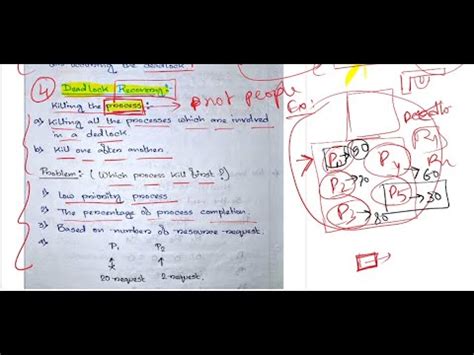 and avoiding the deadlock?
④ Deadlock Recovery:-
Killing the process:- → not people
a) Killing all the processes which are involved
in a dedlock
b) Kill one often anothen.
Problem: (Which process kill first?)
1) Low priority process
2) The percentage of process completion.
3) Based on numbers of resource request.
4) P₁ P₂
20 request 2 request.
Ex:
R₁
P₁ → 90 P₄ → 60
P₂ → 70 P₅ → 30
P₃ → 80